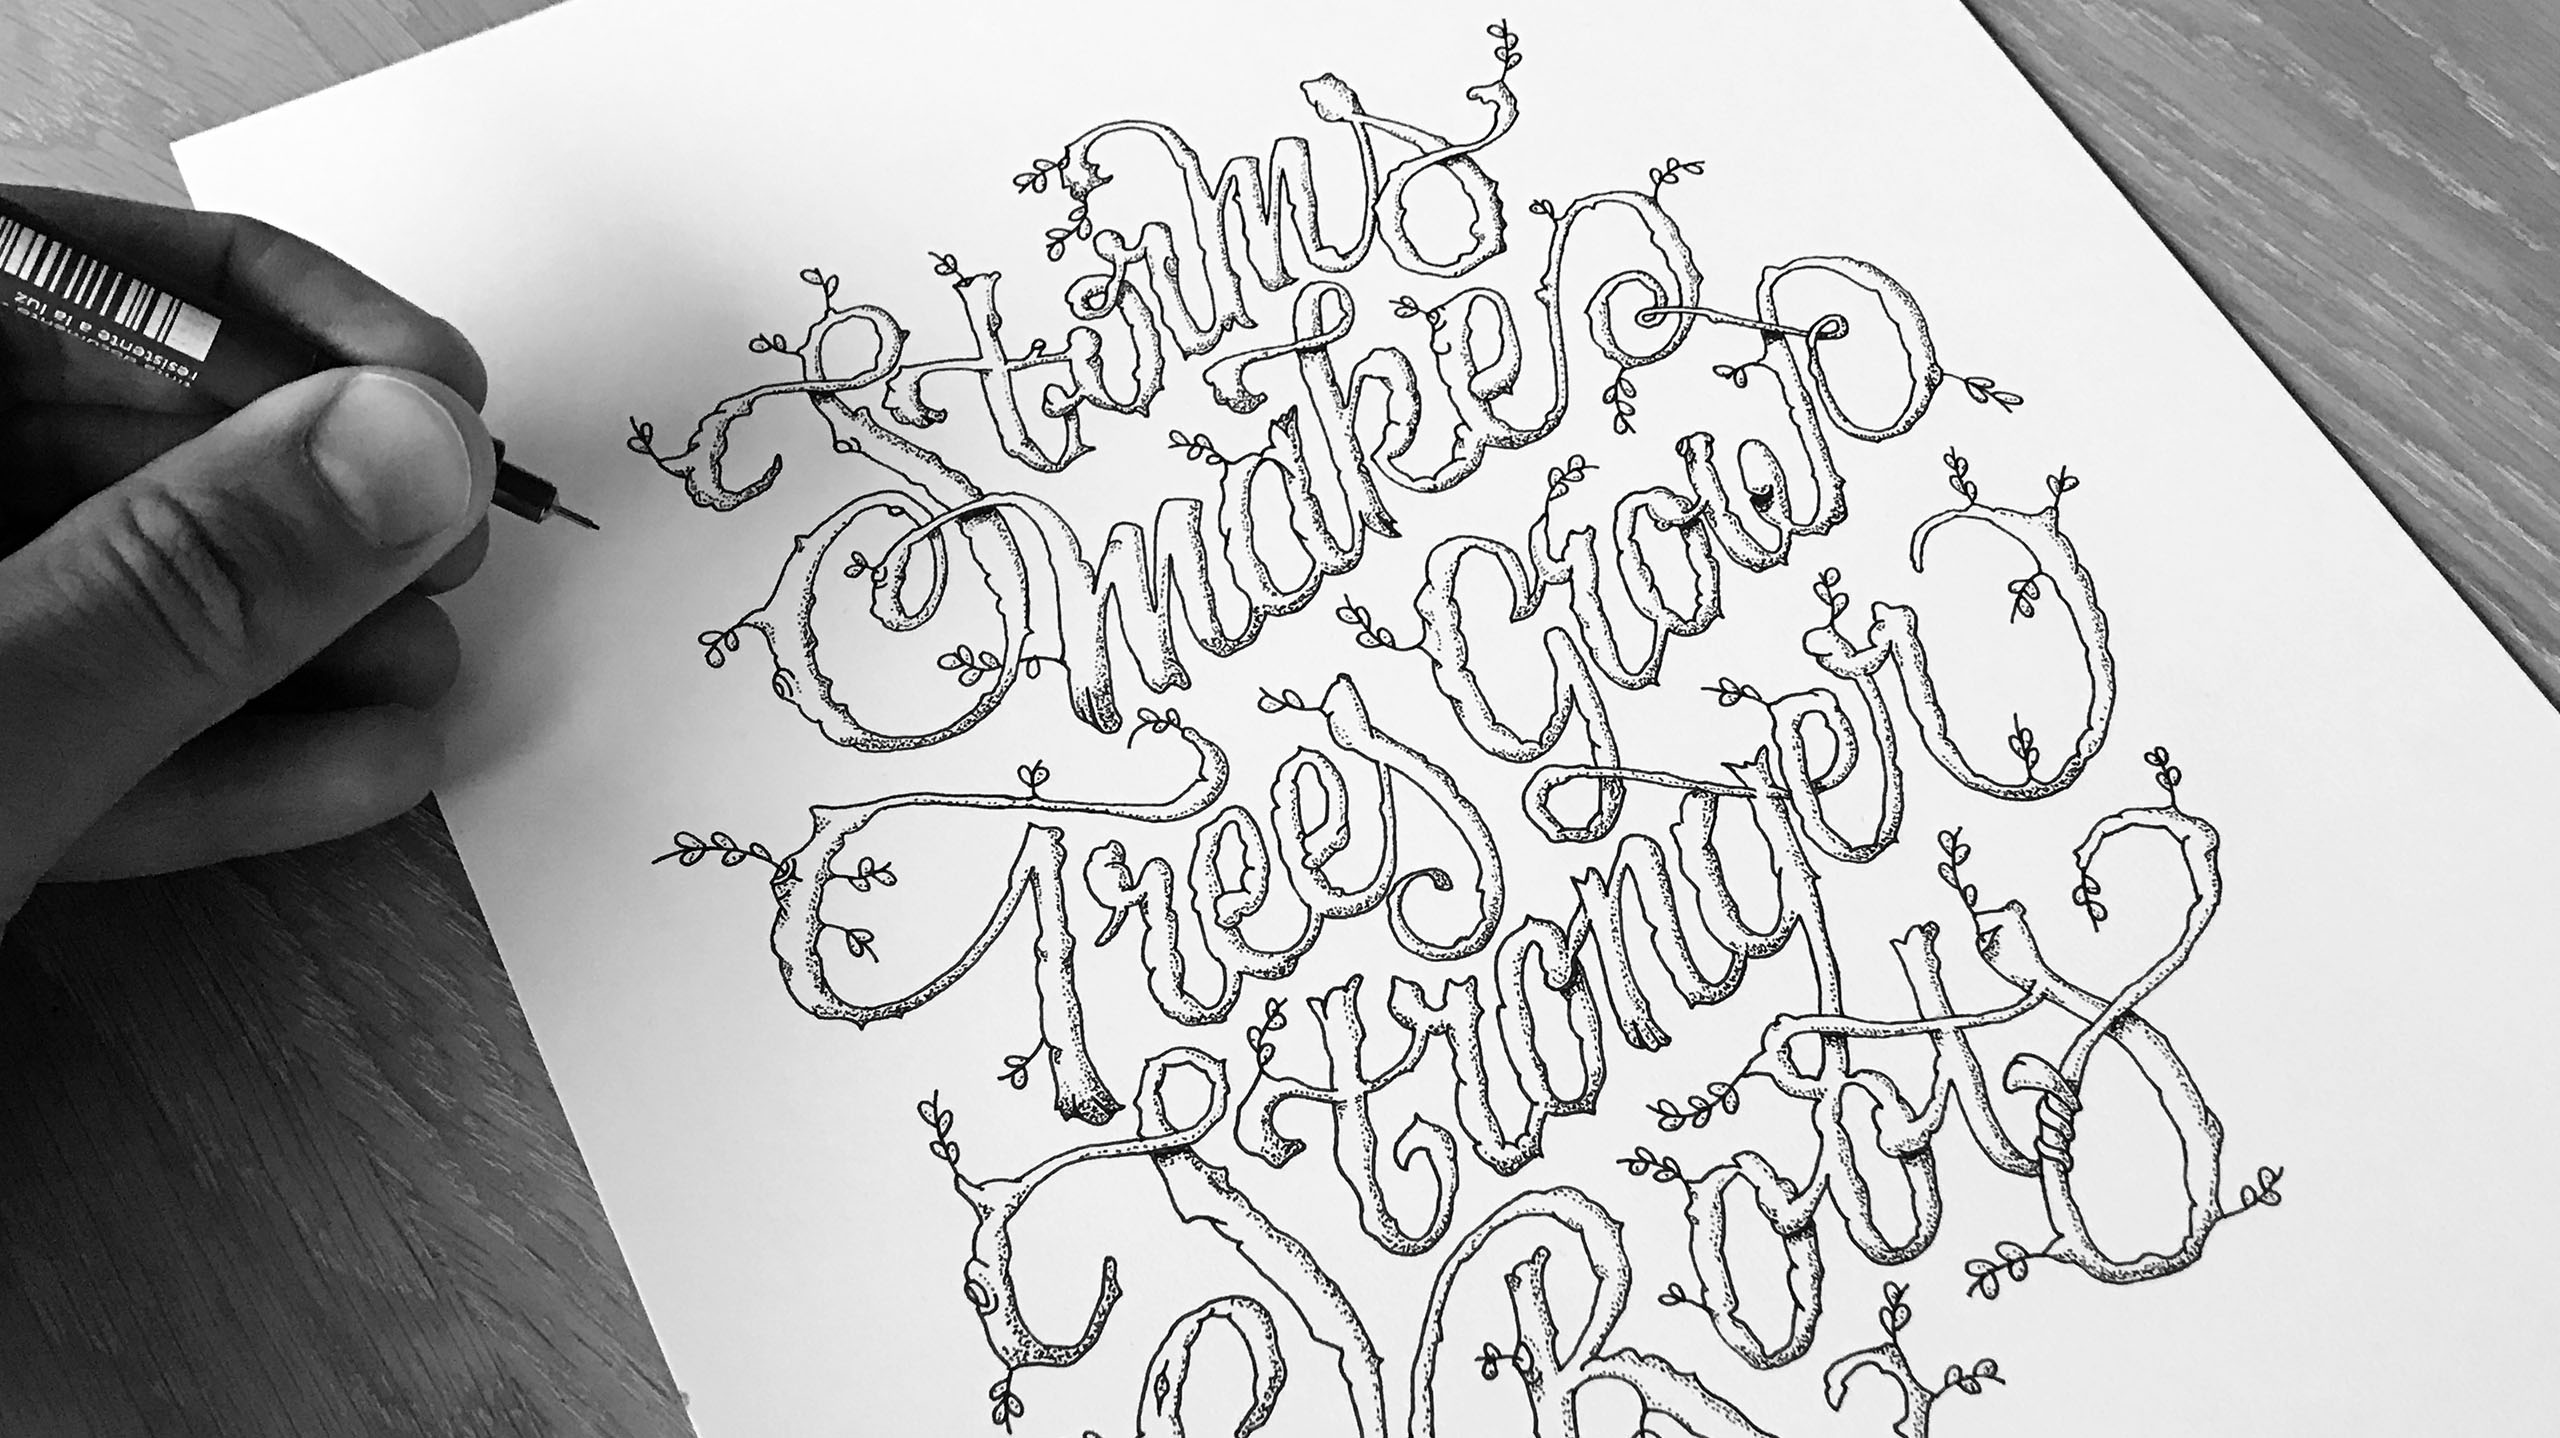 Storms
make
Trees Grow
Stronger
Roots
resistente a la luz